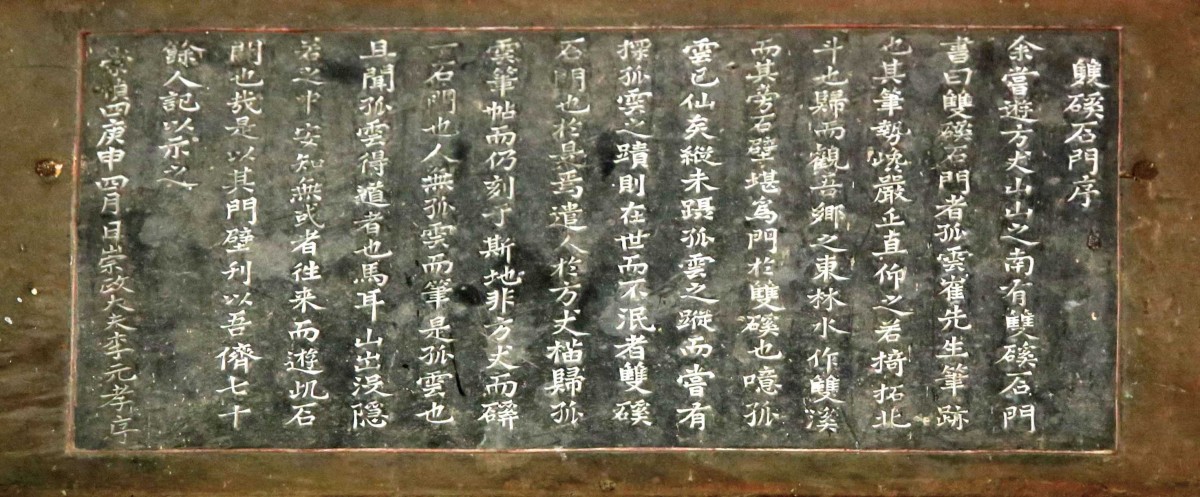 雙磎石門序
余嘗遊方丈山山之南有雙磎石門
書曰雙磎石門者孤雲崔先生筆跡
也其筆勢峻嚴正直仰之若掎拓北
斗也歸而觀吾鄉之東林水作雙溪
而其旁石壁堪爲門於雙磎也噫孤
雲已仙矣縱未躡孤雲之蹤而當有
探孤雲之蹟則在世而不泯者雙磎
石門也於是焉遣人於方丈榻歸孤
雲筆帖而仍刻于斯地非方丈而磎
一石門也人無孤雲而筆是孤雲也
且聞孤雲得道者也馬耳山出沒隱
若之中安知無或者往来而遊此石
門也哉是以其門壁刊以吾儕七十
餘人記以示之
崇禎四庚申四月日崇政大夫李元孝序